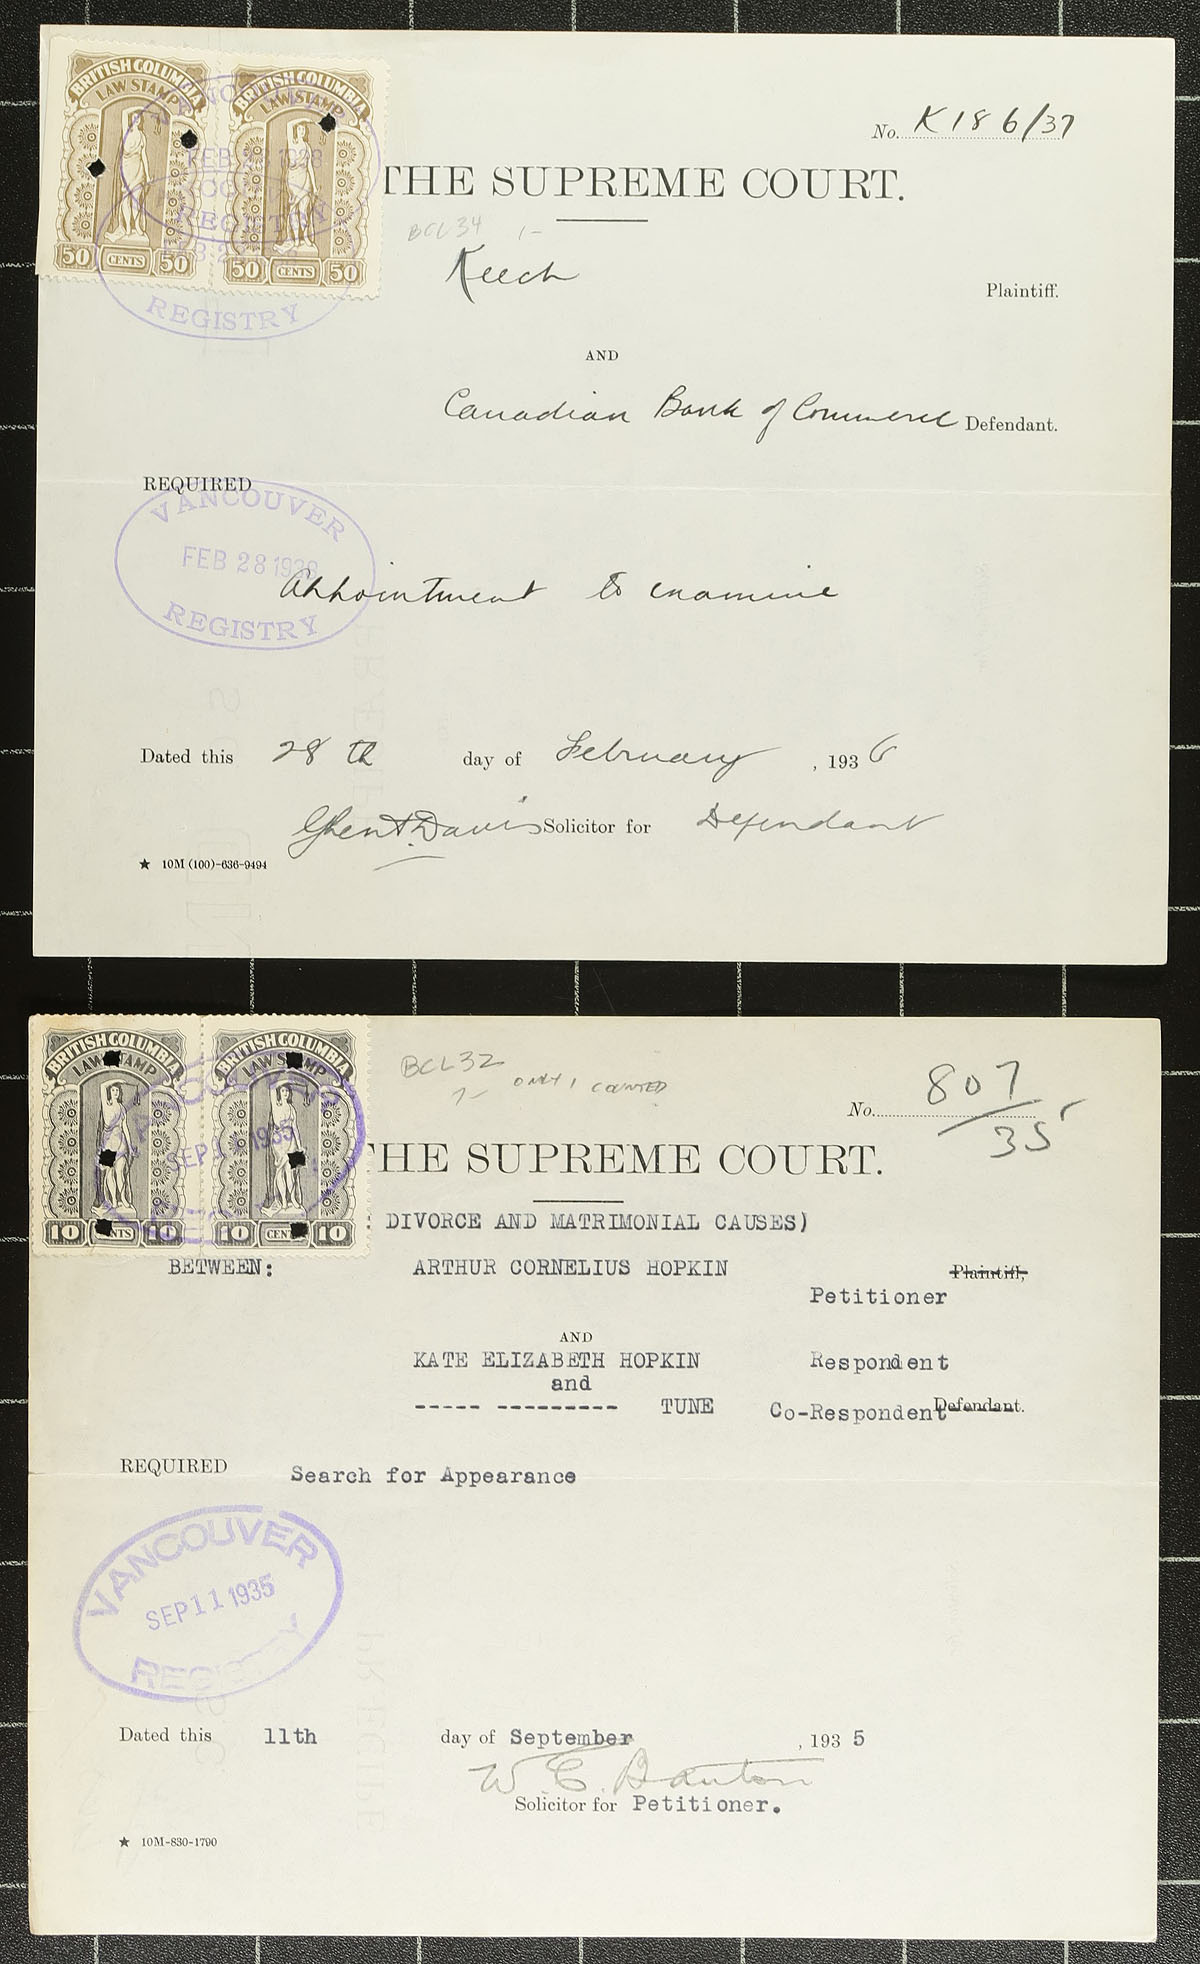 BRITISH COLUMBIA BRITISH COLUMBIA
LAW STAMP LAW STAMP
50 CENTS 50 50 CENTS 50
FEB 28 1938
REGISTRY
REGISTRY
No. K186/37
THE SUPREME COURT.
BCL34 1-
Keech
Plaintiff.
AND
Canadian Bank of Commerce Defendant.
REQUIRED
VANCOUVER
FEB 28 1938
REGISTRY
Appointment to examine
Dated this 28th day of February , 1936
Ghent Davis Solicitor for Defendant
★ 10M (100)-636-9494
BRITISH COLUMBIA BRITISH COLUMBIA
LAW STAMP LAW STAMP
10 CENTS 10 10 CENTS 10
SEP 1 1935
BCL32
7- ONLY 1 COUNTED
No. 807/35
THE SUPREME COURT.
: DIVORCE AND MATRIMONIAL CAUSES)
BETWEEN: ARTHUR CORNELIUS HOPKIN Plaintiff,
Petitioner
AND
KATE ELIZABETH HOPKIN Respondent
and
----- --------- TUNE Co-Respondent Defendant.
REQUIRED Search for Appearance
VANCOUVER
SEP 11 1935
REGISTRY
Dated this 11th day of September , 193 5
W. C. Banton
Solicitor for Petitioner.
★ 10M-830-1790